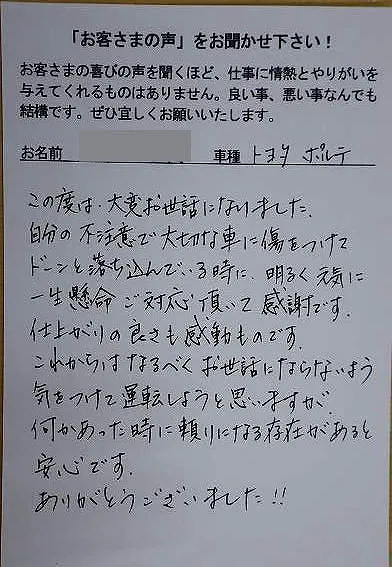 「お客さまの声」をお聞かせ下さい！
お客さまの喜びの声を聞くほど、仕事に情熱とやりがいを
与えてくれるものはありません。良い事、悪い事なんでも
結構です。ぜひ宜しくお願いいたします。
お名前 車種 トヨタ ポルテ
この度は、大変お世話になりました。
自分の不注意で大切な車に傷をつけて
ドーンと落ち込んでいる時に、明るく元気に
一生懸命ご対応頂いて感謝です。
仕上がりの良さも感動ものです。
これからはなるべくお世話にならないよう
気をつけて運転しようと思いますが、
何かあった時に頼りになる存在があると
安心です。
ありがとうございました!!